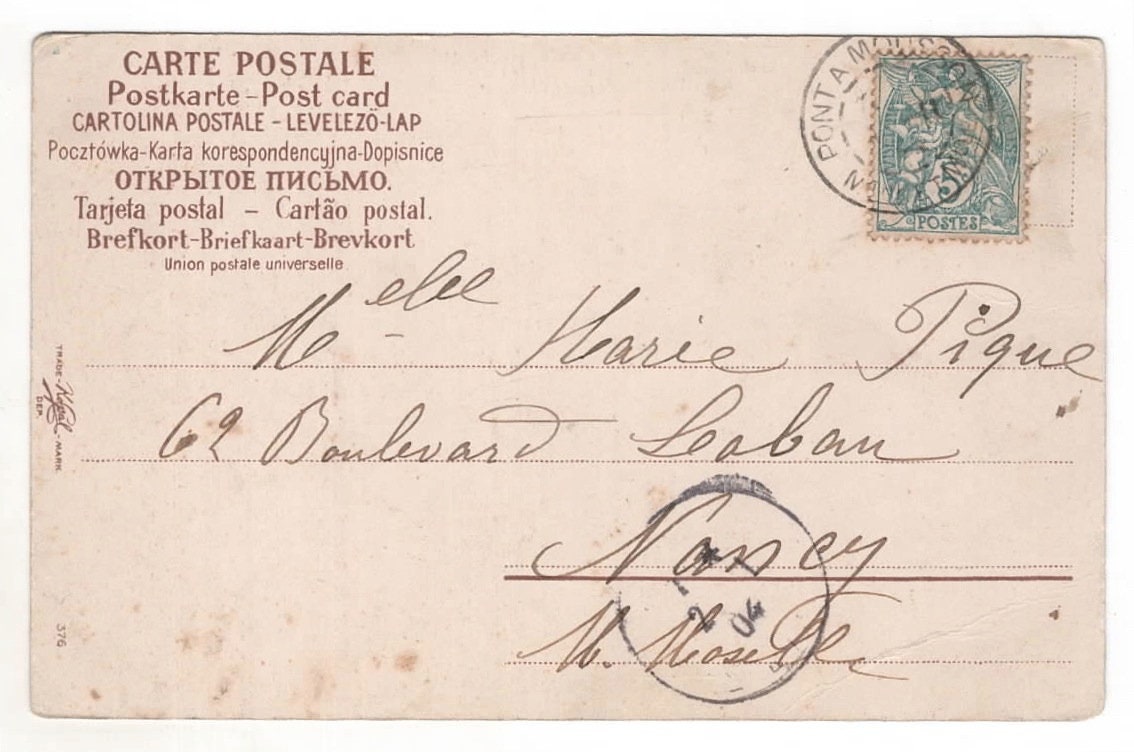 CARTE POSTALE
Postkarte - Post card
CARTOLINA POSTALE - LEVELEZÖ-LAP
Pocztówka-Karta korespondencyjna-Dopisnice
ОТКРЫТОЕ ПИСЬМО.
Tarjeta postal – Cartão postal.
Brefkort-Briefkaart-Brevkort
Union postale universelle
PONT A MOUSSON
5
POSTES
Melle Marie Pique
TRADE-MARK
DEP.
62 Boulevard Loban
Nancy
2
04
M. Moselle
376